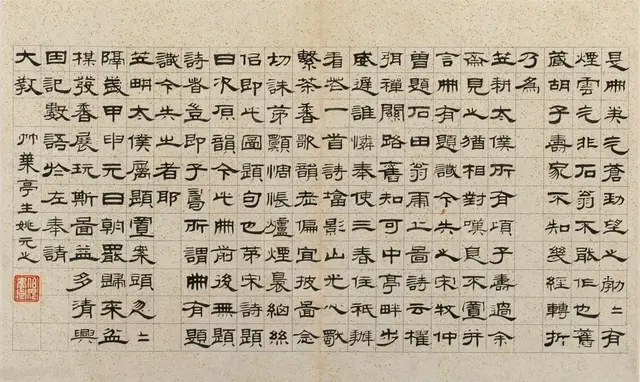 是冊筆气蒼劲望之勃〻有
煙雲气非石翁不敢作也舊
藏胡子壽家不知幾經轉折
乃為
笠耕太僕所有項子壽過余
齋見之猶相對嘆息不置并
言冊有題識今失之宋牧仲
曾題石田翁雨上圖詩云櫂
禪關路舊知可中亭畔步
威遲誰憐奉使三春住祇辦
看花一首詩塔影山光心
繫茶香歌韻並偏宜披圖念
切誅茅願惆悵爐煙裊細絲
侶即此圖題句也第宋詩題
曰次原韻今此冊前後無題
詩者豈即子壽所謂冊有題
識今失之者耶
笠畊太僕屬題置案頭忽〻
隔歲甲申元日朝罷歸來盆
楳發香展玩斯圖益多清興
因記數語於左奉請
大教 竹葉亭生姚元之